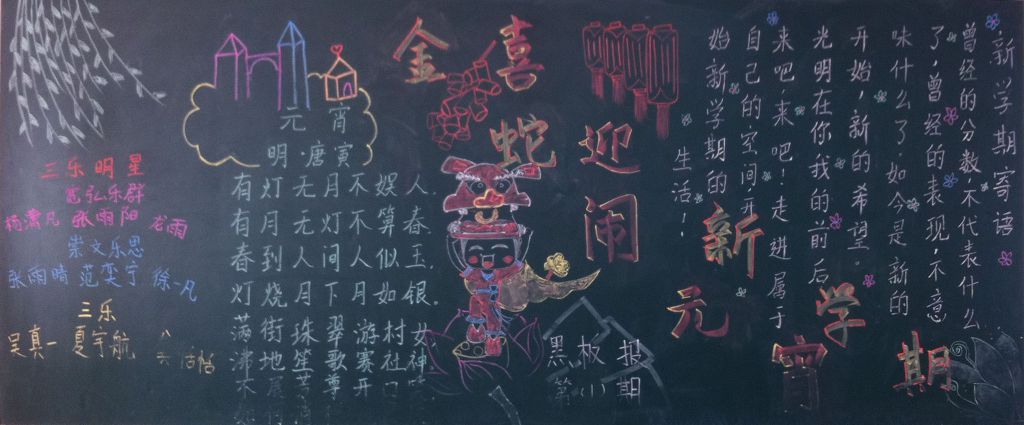 三乐明星
弘乐群
杨潇凡 张雨阳 龙雨
崇文乐思
张雨晴 范奕宁 徐一凡
三乐
吴真一 夏宇航
元宵
明·唐寅
有灯无月不娱人.
有月无灯不算春.
春到人间人似玉.
灯烧月下月如银.
满街珠翠游村女
沸地笙歌赛社神
不
金蛇迎新学期
喜闹元宵
黑板报
第(1)期
新学期寄语
曾经的分数不代表什么
了,曾经的表现,不意
味什么了.如今是新的
开始,新的希望。
光明在你我的前后
来吧,来吧!走进属于
自己的空间,开
始新学期的
生活!